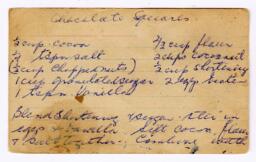 Chocolate Squares
1/2 cup cocoa 2/3 cup flour
1/2 tspn salt 2 cups cocoanut
(1/2 cup chopped nuts) 1/2 cup shortening
1 cup granulated sugar 2 eggs beaten
1 tspn Vanilla
Blend Shortening & sugar. Stir in
eggs & Vanilla Sift Cocoa, flour
& Salt together, Combine with